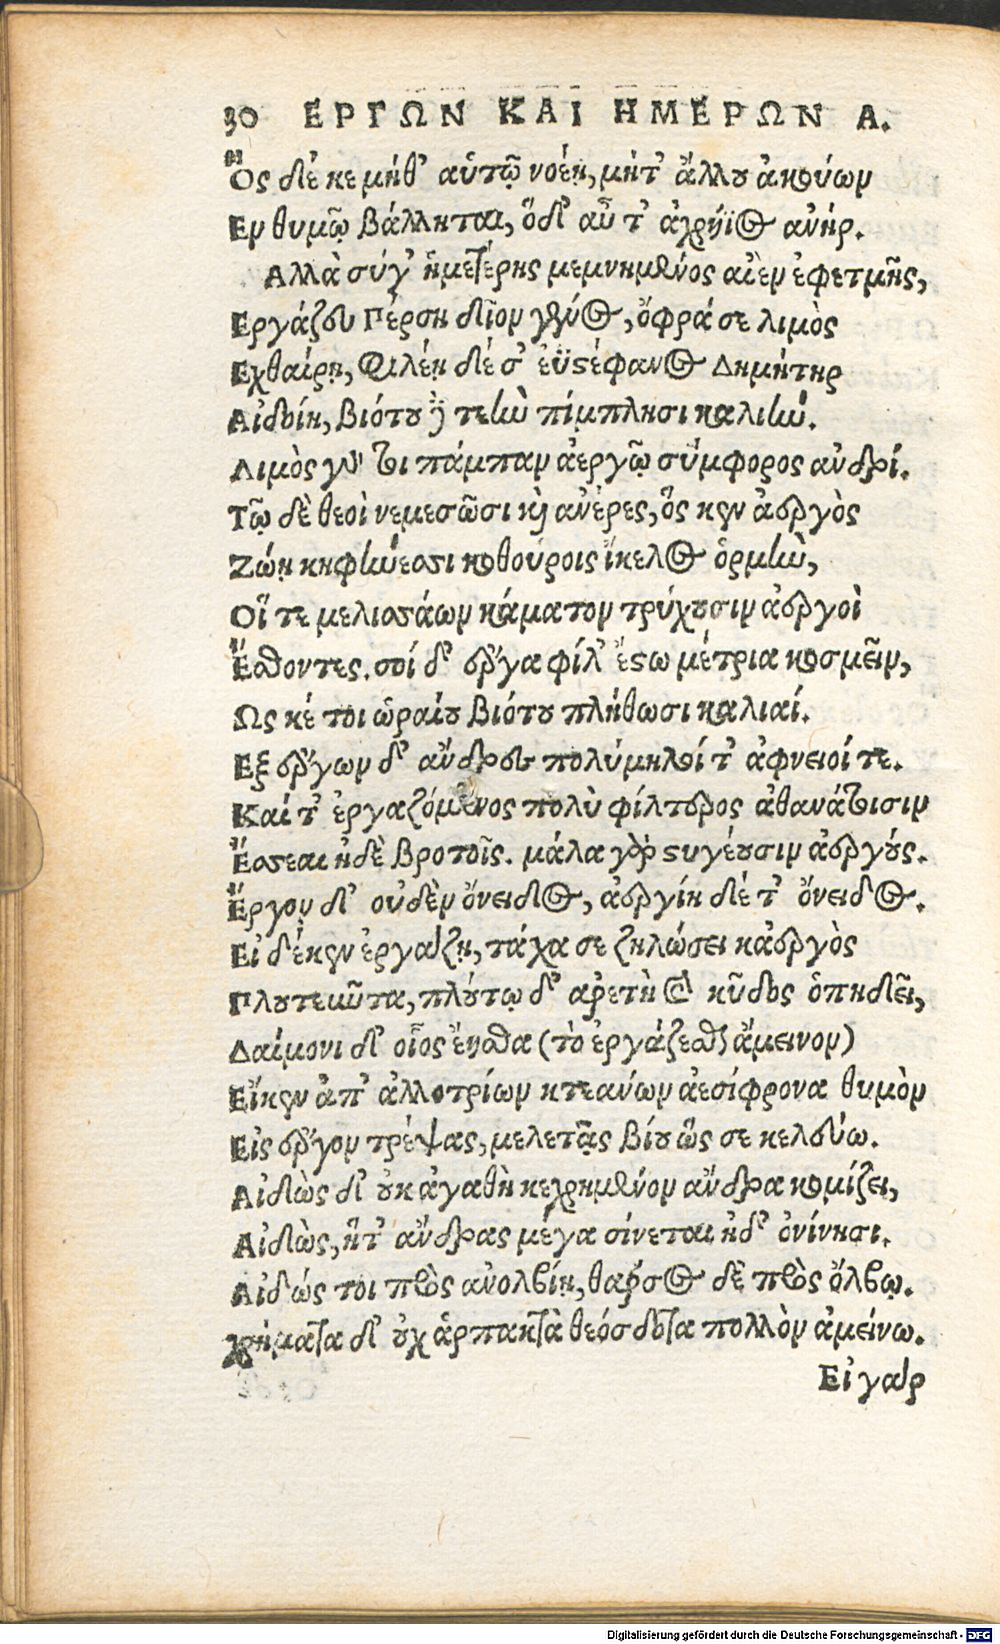 30 ΕΡΓΩΝ ΚΑΙ ΗΜΕΡΩΝ Α.
Ὃς δέ κε μήθ' αὑτῷ νοέῃ, μήτ' ἄλλου ἀκούων
Εν θυμῷ βάλληται, ὅδ' αὖ τ' ἀχρήϊος ἀνήρ.
Αλλὰ σύγ' ἡμετέρης μεμνημένος αἰὲν ἐφετμῆς,
Εργάζου Πέρση δῖον γένος, ὄφρά σε λιμὸς
Εχθαίρῃ, φιλέῃ δέ σ' ἐϋστέφανος Δημήτηρ
Αἰδοίη, βιότου δὲ τεὴν πίμπλησι καλιήν.
Λιμὸς γάρ τοι πάμπαν ἀεργῷ σύμφορος ἀνδρί.
Τῷ δὲ θεοὶ νεμεσῶσι καὶ ἀνέρες, ὅς κεν ἀεργὸς
Ζώῃ κηφήνεσσι κοθούροις ἴκελος ὁρμὴν,
Οἵ τε μελισσάων κάματον τρύχουσιν ἀεργοὶ
Ἔσθοντες. σοί δ' ἔργα φίλ' ἔστω μέτρια κοσμεῖν,
Ως κέ τοι ὡραίου βιότου πλήθωσι καλιαί.
Εξ ἔργων δ' ἄνδρες πολύμηλοί τ' ἀφνειοί τε.
Καί τ' ἐργαζόμενος πολὺ φίλτερος ἀθανάτοισιν
Ἔσσεαι ἠδὲ βροτοῖς. μάλα γὰρ στυγέουσιν ἀεργούς.
Ἔργον δ' οὐδὲν ὄνειδος, ἀεργίη δέ τ' ὄνειδος.
Εἰ δέ κεν ἐργάζῃ, τάχα σε ζηλώσει κἀεργὸς
Πλουτεῦντα, πλούτῳ δ' ἀρετὴ καὶ κῦδος ὀπηδεῖ,
Δαίμονι δ' οἷος ἔησθα (τὸ ἐργάζεσθαι ἄμεινον)
Εἴκεν ἀπ' ἀλλοτρίων κτεάνων ἀεσίφρονα θυμὸν
Εἰς ἔργον τρέψας, μελετᾷς βίου ὥς σε κελεύω.
Αἰδὼς δ' οὐκ ἀγαθὴ κεχρημένον ἄνδρα κομίζει,
Αἰδὼς, ἥτ' ἄνδρας μέγα σίνεται ἠδ' ὀνίνησι.
Αἰδώς τοι πρὸς ἀνολβίῃ, θάρσος δὲ πρὸς ὄλβῳ.
Χρήματα δ' οὐχ ἁρπακτὰ θεόσδοτα πολλὸν ἀμείνω.
Εἰ γάρ
Digitalisierung gefördert durch die Deutsche Forschungsgemeinschaft - DFG